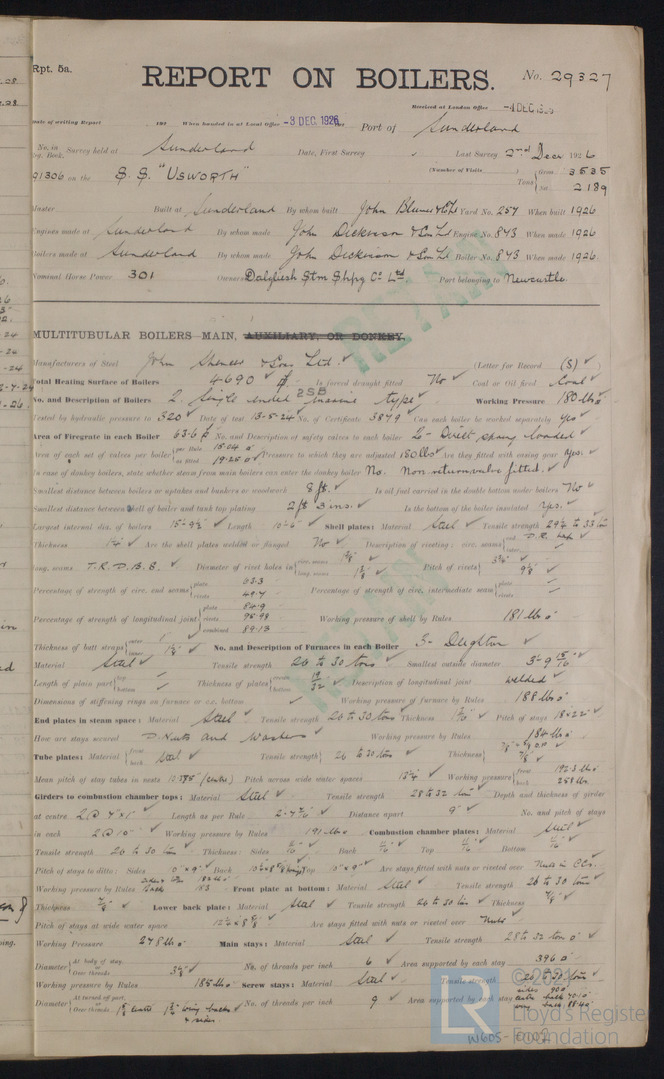 Rpt. 5a.
REPORT ON BOILERS.
No. 29327
Received at London Office -4 DEC 1926
Date of writing Report 192 When handed in at Local Office -3 DEC. 1926 Port of Sunderland
No. in Reg. Book. Survey held at Sunderland Date, First Survey Last Survey 2nd Decr 1926
(Number of Visits )
91306 on the S.S. "USWORTH" Tons Gross 3535 Net 2189
Master Built at Sunderland By whom built John Blumer & Co Ld Yard No. 257 When built 1926
Engines made at Sunderland By whom made John Dickinson & Sons Ld Engine No. 873 When made 1926
Boilers made at Sunderland By whom made John Dickinson & Sons Ld Boiler No. 873 When made 1926
Nominal Horse Power 301 Owners Dalgliesh Stm Shpg Co Ltd Port belonging to Newcastle
RETAIN
MULTITUBULAR BOILERS—MAIN, AUXILIARY, OR DONKEY.
Manufacturers of Steel John Spencer & Sons Ltd. (Letter for Record (S))
Total Heating Surface of Boilers 4690 Is forced draught fitted No Coal or Oil fired Coal
2SB
No. and Description of Boilers 2 Single ended marine type Working Pressure 180 lbs
Tested by hydraulic pressure to 320 Date of test 13-5-24 No. of Certificate 3879 Can each boiler be worked separately yes
Area of Firegrate in each Boiler 63.6 No. and Description of safety valves to each boiler 2- Direct spring loaded
Area of each set of valves per boiler per Rule 15.04 as fitted 19.25 Pressure to which they are adjusted 180 lbs Are they fitted with easing gear yes.
In case of donkey boilers, state whether steam from main boilers can enter the donkey boiler No. Non return valve fitted.
Smallest distance between boilers or uptakes and bunkers or woodwork 8 ft. Is oil fuel carried in the double bottom under boilers No
Smallest distance between shell of boiler and tank top plating 2 ft 3 ins. Is the bottom of the boiler insulated yes.
Largest internal dia. of boilers Length Shell plates: Material Steel Tensile strength
Thickness Are the shell plates welded or flanged No Description of riveting: circ. seams end D.R. Lap
long. seams T.R.D.B.S. Diameter of rivet holes in circ. seams long. seams Pitch of rivets
Percentage of strength of circ. end seams plate 63.3 rivets 49.7 Percentage of strength of circ. intermediate seam plate rivets
Percentage of strength of longitudinal joint plate 84.9 rivets combined 89.13 Working pressure of shell by Rules 181 lbs
RETAIN
Thickness of butt straps outer inner No. and Description of Furnaces in each Boiler 3- Deighton
Material Steel Tensile strength 26 to 30 tons Smallest outside diameter 3'-9 15/16"
Length of plain part top bottom Thickness of plates crown bottom 19/32" Description of longitudinal joint welded
Dimensions of stiffening rings on furnace or c.c. bottom Working pressure of furnace by Rules 188 lbs
End plates in steam space: Material Steel Tensile strength 26 to 30 tons Thickness Pitch of stays 18 x 22"
How are stays secured D. Nuts and Washers Working pressure by Rules 184 lbs
Tube plates: Material front back Steel Tensile strength 26 to 30 tons Thickness
Mean pitch of stay tubes in nests Pitch across wide water spaces Working pressure front 192.3 lbs back 258 lbs
Girders to combustion chamber tops: Material Steel Tensile strength 28 to 32 tons Depth and thickness of girder
at centre Length as per Rule Distance apart 9" No. and pitch of stays
in each 2 @ 10" Working pressure by Rules 191 lbs Combustion chamber plates: Material Steel
Tensile strength 26 to 30 tons Thickness: Sides Back Top Bottom
Pitch of stays to ditto: Sides 10" x 9" Back Top 10" x 9" Are stays fitted with nuts or riveted over Nuts in CCs.
Working pressure by Rules Back 183 Front plate at bottom: Material Steel Tensile strength 26 to 30 tons
Thickness 7/8" Lower back plate: Material Steel Tensile strength 26 to 30 tons Thickness 7/8"
Pitch of stays at wide water space Are stays fitted with nuts or riveted over Nuts
Working Pressure 248 lbs Main stays: Material Steel Tensile strength 28 to 32 tons
Diameter At body of stay, or Over threads No. of threads per inch 6 Area supported by each stay 396
Working pressure by Rules 185 lbs Screw stays: Material Steel Tensile strength 26 to 30 tons
Diameter At turned off part, or Over threads No. of threads per inch 9 Area supported by each stay sides 90
© 2021
Lloyd's Register
Foundation
LR
W605-0102